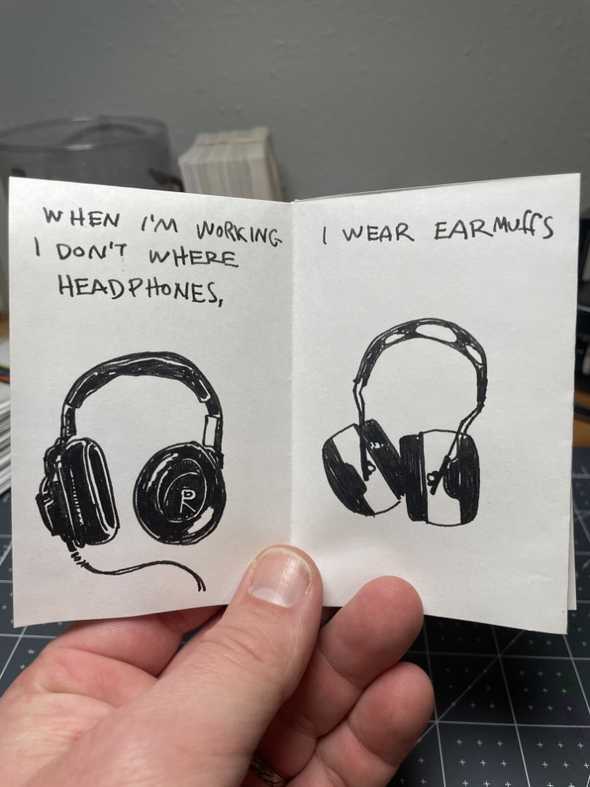 WHEN I'M WORKING
I DON'T WHERE
HEADPHONES,
I WEAR EARMUFFS
R